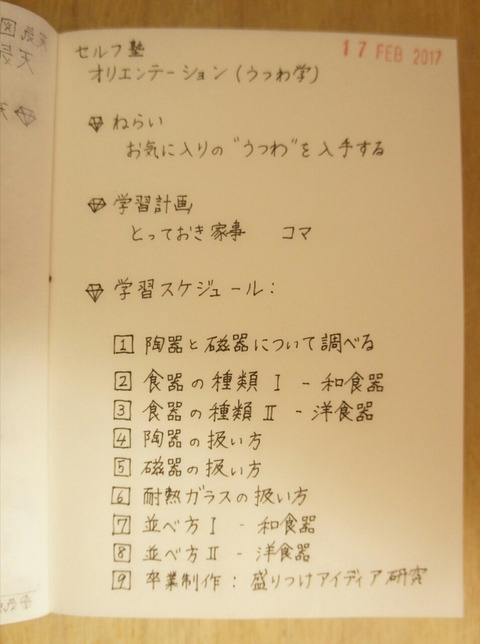 セルフ塾
17 FEB 2017
オリエンテーション(うつわ学)
ねらい
お気に入りの"うつわ"を入手する
学習計画
とっておき家事 コマ
学習スケジュール:
1 陶器と磁器について調べる
2 食器の種類 I - 和食器
3 食器の種類 II - 洋食器
4 陶器の扱い方
5 磁器の扱い方
6 耐熱ガラスの扱い方
7 並べ方 I - 和食器
8 並べ方 II - 洋食器
9 卒業制作: 盛りつけアイディア研究